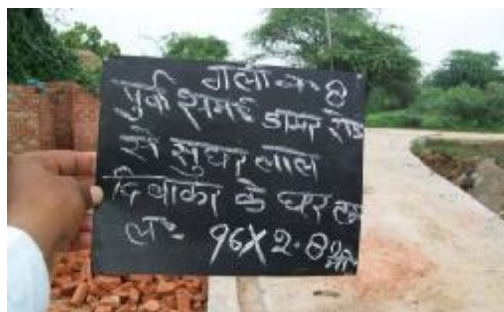 गली न॰ 8
पुर्व समय डामर रोड
से सुघर लाल
दिवाकर के घर तक
ल॰ 96X2.8 मी॰